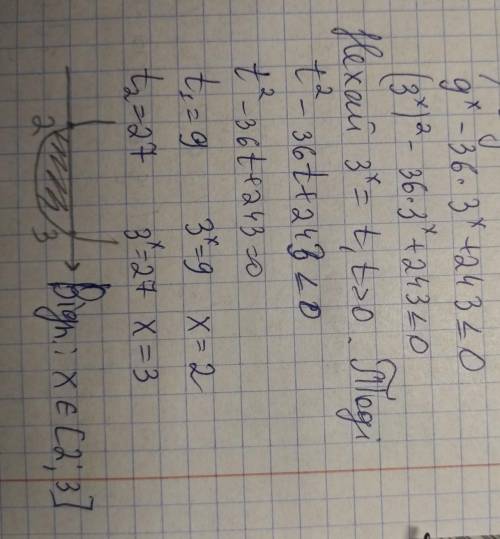 9ˣ - 36·3ˣ + 243 ≤ 0
(3ˣ)² - 36·3ˣ + 243 ≤ 0
Нехай 3ˣ = t, t>0. Тоді
t² - 36t + 243 ≤ 0
t² - 36t + 243 = 0
t₁ = 9 3ˣ = 9 x = 2
t₂ = 27 3ˣ = 27 x = 3
2 3 Відп.: x ∈ [2; 3]